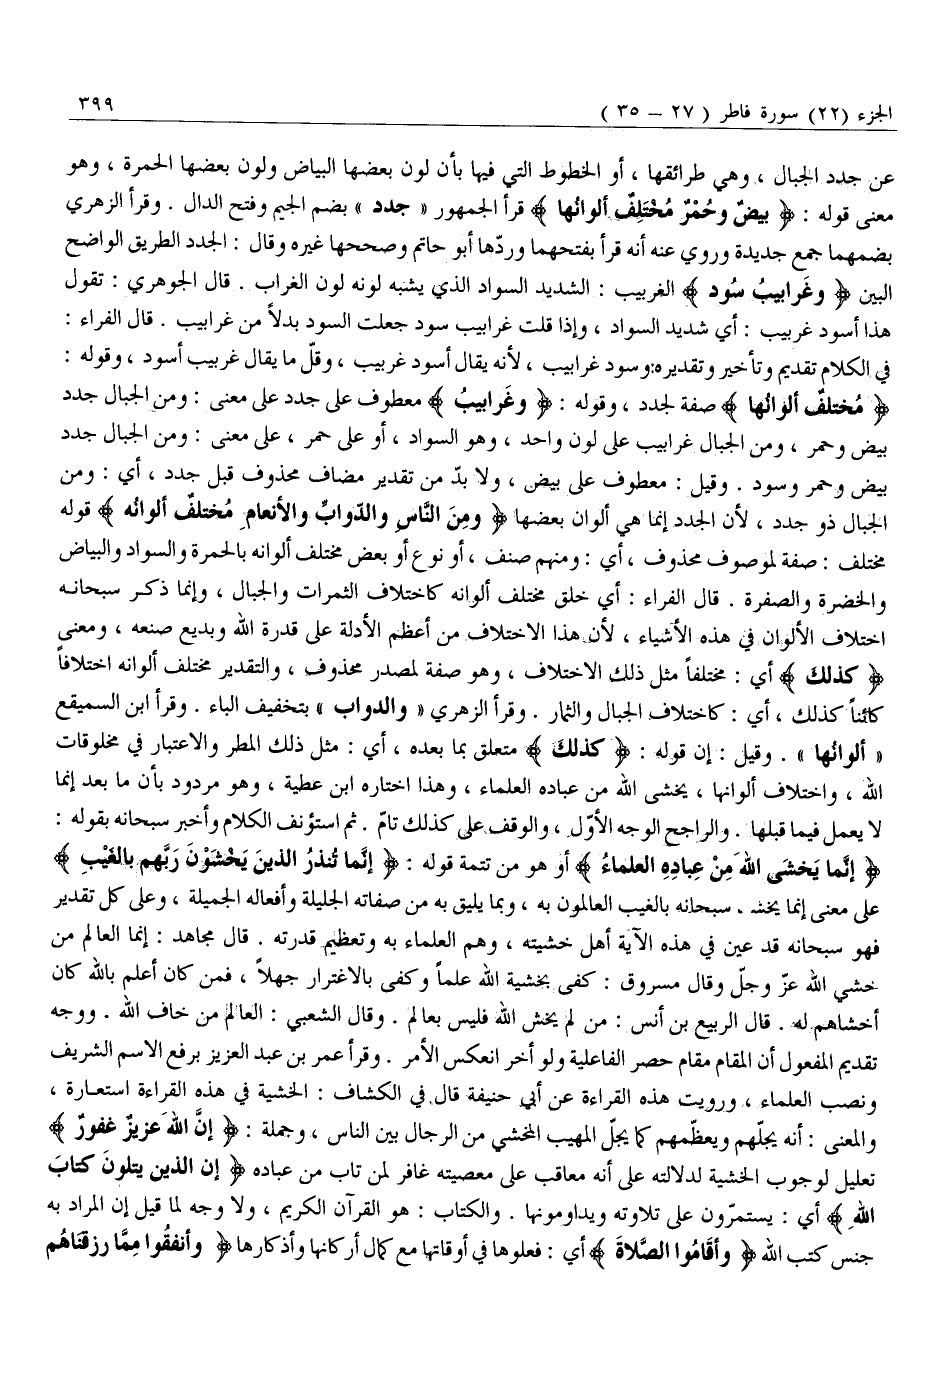 الجزء (٢٢) سورة فاطر ( ٢٧ – ٣٥ ) ٣٩٩
عن جدد الجبال ، وهي طرائقها ، أو الخطوط التي فيها بأن لون بعضها البياض ولون بعضها الحمرة ، وهو
معنى قوله : ﴿ بيضٌ وحُمْرٌ مُخْتَلِفٌ ألوانُها ﴾ قرأ الجمهور « جدد » بضم الجيم وفتح الدال . وقرأ الزهري
بضمهما جمع جديدة وروي عنه أنه قرأ بفتحهما وردّها أبو حاتم وصححها غيره وقال : الجدد الطريق الواضح
البين ﴿ وغَرابيبُ سُود ﴾ الغربيب : الشديد السواد الذي يشبه لونه لون الغراب . قال الجوهري : تقول
هذا أسود غربيب : أي شديد السواد ، وإذا قلت غرابيب سود جعلت السود بدلاً من غرابيب . قال الفراء :
في الكلام تقديم وتأخير وتقديره:وسود غرابيب ، لأنه يقال أسود غربيب ، وقلّ ما يقال غربيب أسود ، وقوله :
﴿ مُختلفٌ ألوانُها ﴾ صفة لجدد ، وقوله : ﴿ وغَرابيبُ ﴾ معطوف على جدد على معنى : ومن الجبال جدد
بيض وحمر ، ومن الجبال غرابيب على لون واحد ، وهو السواد ، أو على حمر ، على معنى : ومن الجبال جدد
بيض وحمر وسود . وقيل : معطوف على بيض ، ولا بدّ من تقدير مضاف محذوف قبل جدد ، أي : ومن
الجبال ذو جدد ، لأن الجدد إنما هي ألوان بعضها ﴿ ومِنَ النَّاسِ والدّوابِّ والأنعامِ مُختلفٌ ألوانُه ﴾ قوله
مختلف : صفة لموصوف محذوف ، أي : ومنهم صنف ، أو نوع أو بعض مختلف ألوانه بالحمرة والسواد والبياض
والخضرة والصفرة . قال الفراء : أي خلق مختلف ألوانه كاختلاف الثمرات والجبال ، وإنما ذكر سبحانه
اختلاف الألوان في هذه الأشياء ، لأن هذا الاختلاف من أعظم الأدلة على قدرة الله وبديع صنعه ، ومعنى
﴿ كذلكَ ﴾ أي : مختلفاً مثل ذلك الاختلاف ، وهو صفة لمصدر محذوف ، والتقدير مختلف ألوانه اختلافاً
كائناً كذلك ، أي : كاختلاف الجبال والثمار . وقرأ الزهري « والدواب » بتخفيف الباء . وقرأ ابن السميقع
« ألوانُها » . وقيل : إن قوله : ﴿ كذلكَ ﴾ متعلق بما بعده ، أي : مثل ذلك المطر والاعتبار في مخلوقات
الله ، واختلاف ألوانها ، يخشى الله من عباده العلماء ، وهذا اختاره ابن عطية ، وهو مردود بأن ما بعد إنما
لا يعمل فيما قبلها . والراجح الوجه الأوّل ، والوقف على كذلك تامّ . ثم استؤنف الكلام وأخبر سبحانه بقوله :
﴿ إنَّما يَخشَى اللهَ مِنْ عِبادِهِ العلماءُ ﴾ أو هو من تتمة قوله : ﴿ إنَّما تُنذرُ الذينَ يَخْشَوْنَ رَبَّهم بالغَيْبِ ﴾
على معنى إنما يخشـ . سبحانه بالغيب العالمون به ، وبما يليق به من صفاته الجليلة وأفعاله الجميلة ، وعلى كل تقدير
فهو سبحانه قد عين في هذه الآية أهل خشيته ، وهم العلماء به وتعظيم قدرته . قال مجاهد : إنما العالم من
خشي الله عزّ وجلّ وقال مسروق : كفى بخشية الله علماً وكفى بالاغترار جهلاً ، فمن كان أعلم بالله كان
أخشاهم له . قال الربيع بن أنس : من لم يخش الله فليس بعالم . وقال الشعبي : العالم من خاف الله . ووجه
تقديم المفعول أن المقام مقام حصر الفاعلية ولو أخر انعكس الأمر . وقرأ عمر بن عبد العزيز برفع الاسم الشريف
ونصب العلماء ، ورويت هذه القراءة عن أبي حنيفة قال في الكشاف : الخشية في هذه القراءة استعارة ،
والمعنى : أنه يجلّهم ويعظّمهم كما يجلّ المهيب المخشي من الرجال بين الناس ، وجملة : ﴿ إنَّ اللهَ عزيزٌ غفورٌ ﴾
تعليل لوجوب الخشية لدلالته على أنه معاقب على معصيته غافر لمن تاب من عباده ﴿ إن الذين يتلونَ كتابَ
اللهِ ﴾ أي : يستمرّون على تلاوته ويداومونها . والكتاب : هو القرآن الكريم ، ولا وجه لما قيل إن المراد به
جنس كتب الله ﴿ وأقامُوا الصَّلاةَ ﴾ أي : فعلوها في أوقاتها مع كمال أركانها وأذكارها ﴿ وأنفقُوا مِمَّا رزقناهُم